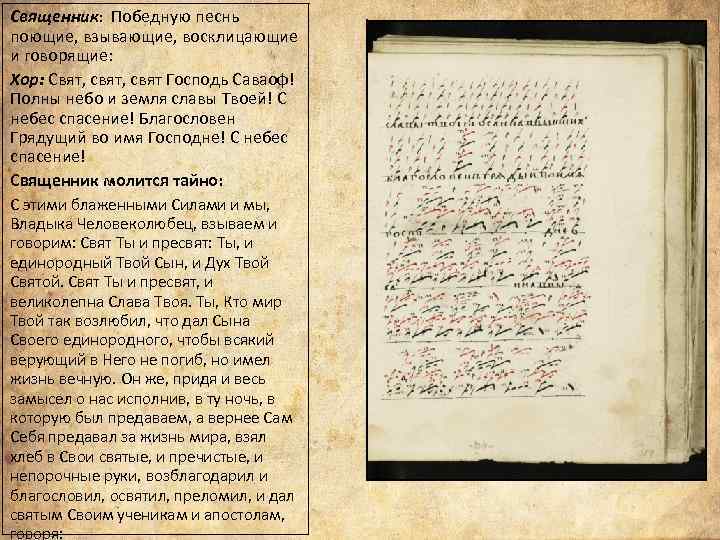 Священник: Победную песнь
поющие, взывающие, восклицающие
и говорящие:
Хор: Свят, свят, свят Господь Саваоф!
Полны небо и земля славы Твоей! С
небес спасение! Благословен
Грядущий во имя Господне! С небес
спасение!
Священник молится тайно:
С этими блаженными Силами и мы,
Владыка Человеколюбец, взываем и
говорим: Свят Ты и пресвят: Ты, и
единородный Твой Сын, и Дух Твой
Святой. Свят Ты и пресвят, и
великолепна Слава Твоя. Ты, Кто мир
Твой так возлюбил, что дал Сына
Своего единородного, чтобы всякий
верующий в Него не погиб, но имел
жизнь вечную. Он же, придя и весь
замысел о нас исполнив, в ту ночь, в
которую был предаваем, а вернее Сам
Себя предавал за жизнь мира, взял
хлеб в Свои святые, и пречистые, и
непорочные руки, возблагодарил и
благословил, освятил, преломил, и дал
святым Своим ученикам и апостолам,
говоря: